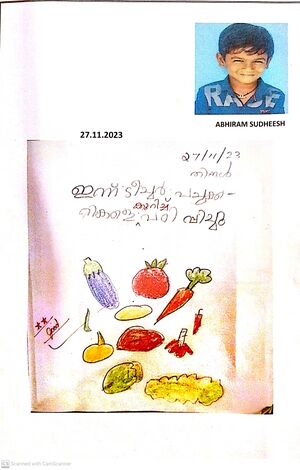 RACE
ABHIRAM SUDHEESH
27.11.2023
27/11/23
തിങ്കൾ
ഇന്ന് ടീച്ചർ പച്ചക്ക-
കുറിച്ച്
പഠിപ്പിച്ചു
Good
CS Scanned with CamScanner